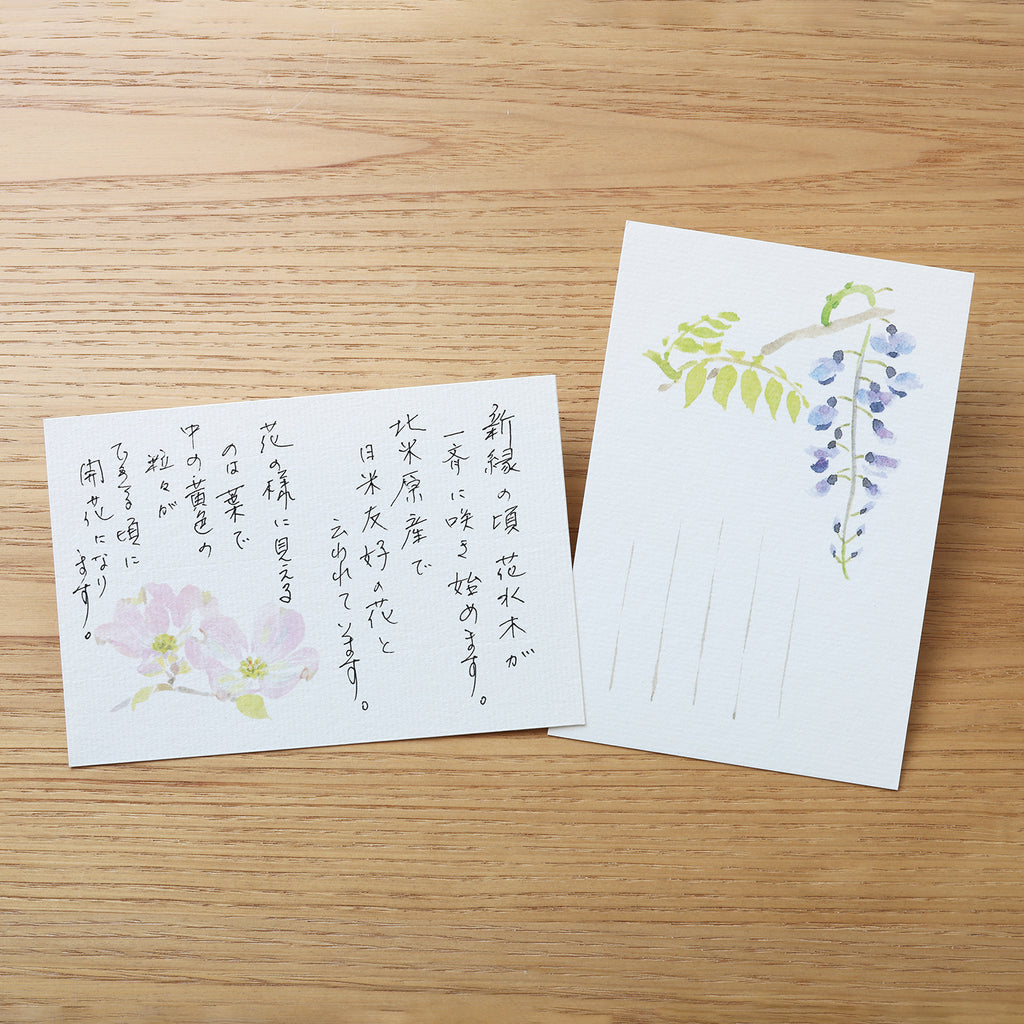 新緑の頃 花水木が
一斉に咲き始めます。
北米原産で
日米友好の花と
云われています。
花の様に見える
のは葉で
中の黄色の
粒々が
できる頃に
開花になり
ます。